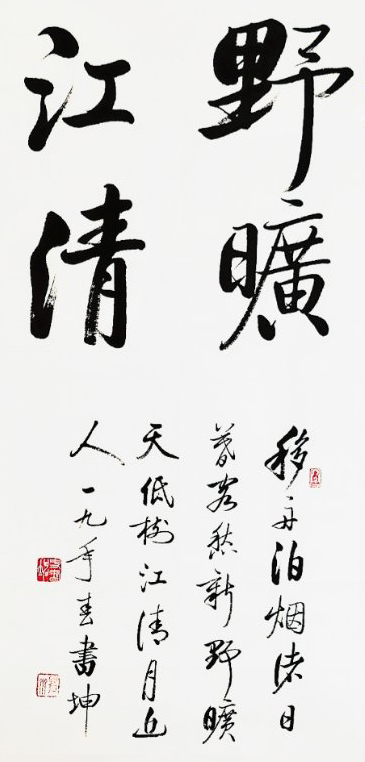 野曠
江清
移舟泊烟渚日
暮客愁新野曠
天低樹江清月近
人一九年春書坤